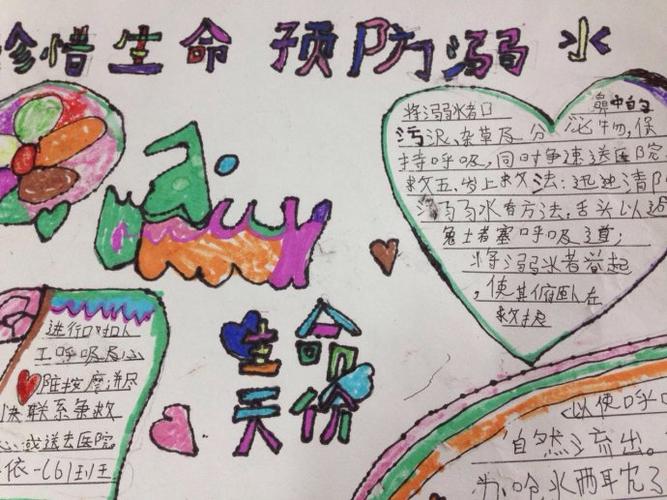 珍惜生命 预防溺水
将溺水者口
鼻中的
污泥、杂草及分泌物,保
持呼吸,同时争速送医院
救五、岸上救法:迅速清
溺水者方法,舌头以
免土者塞呼吸道;
将溺水者举起
,使其俯卧在
救护
生命
天价
进行口对口人
工呼吸及心
脏按摩,并尽
快联系争救
心或送去医院
依一(6)班王
以使呼
自然流出。
水两耳